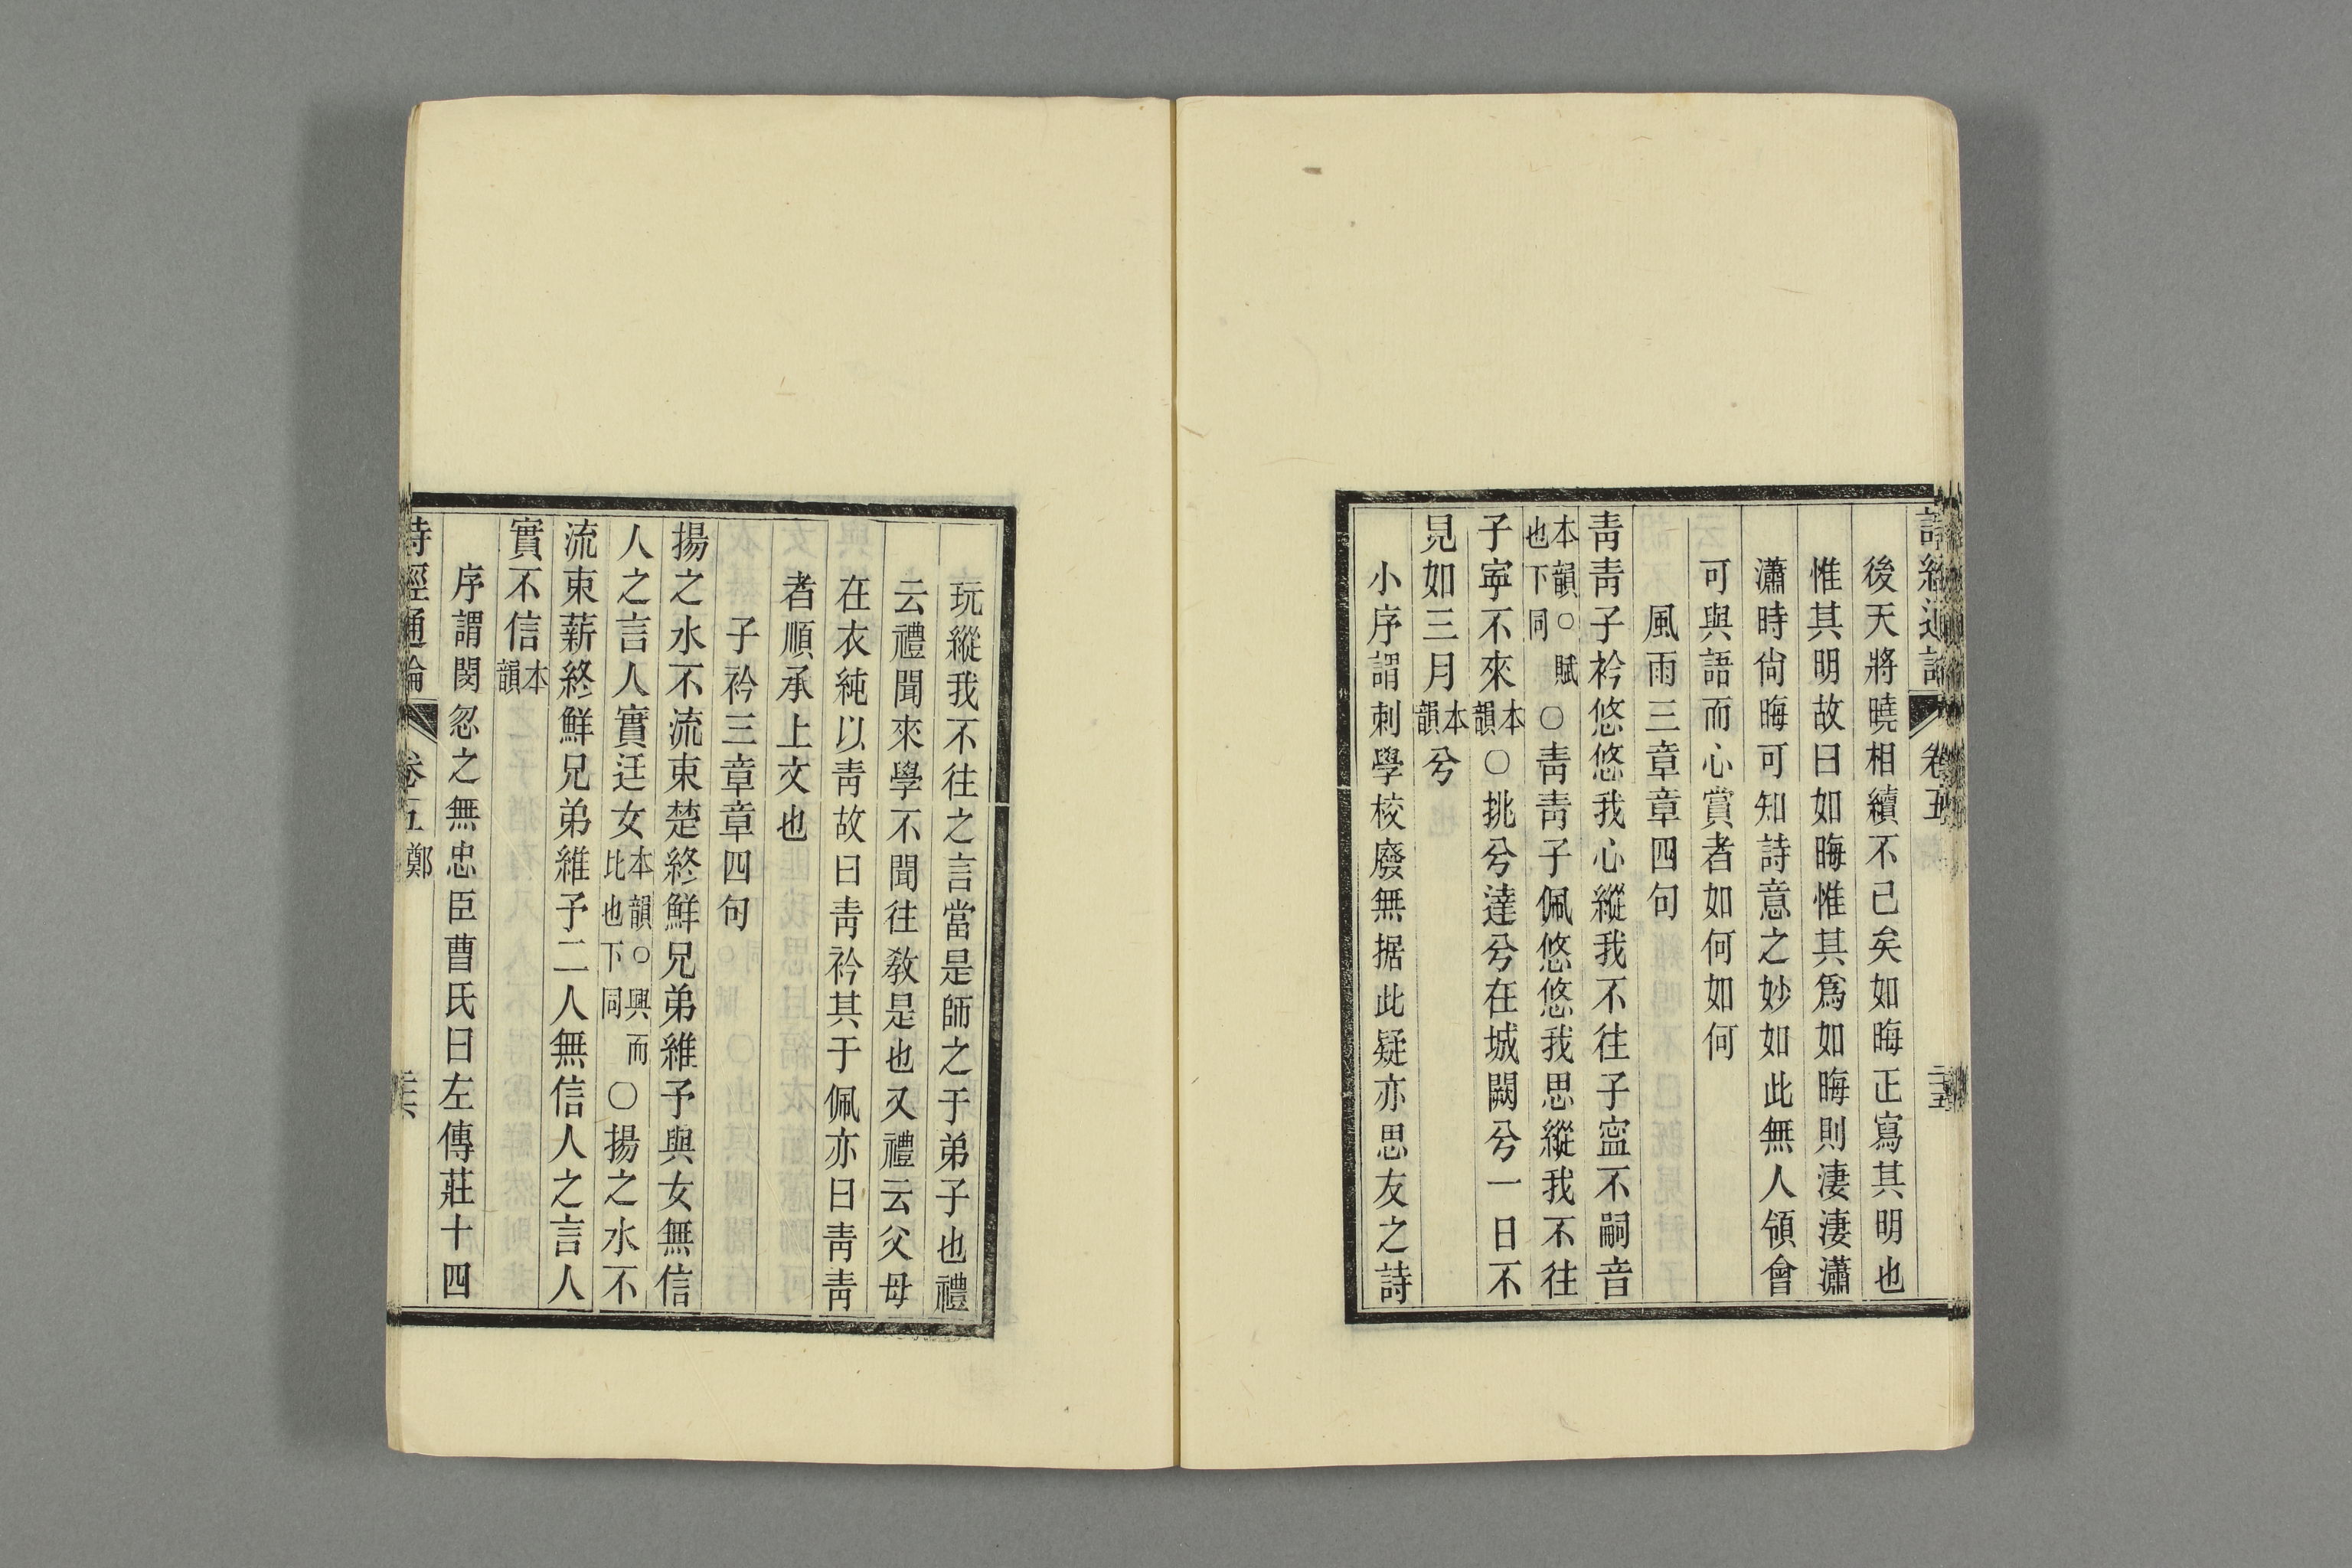 詩經通論 卷五 二十五
後天將曉相續不已矣如晦正寫其明也
惟其明故曰如晦惟其爲如晦則淒淒瀟
瀟時尙晦可知詩意之妙如此無人領會
可與語而心賞者如何如何
風雨三章章四句
靑靑子衿悠悠我心縱我不往子寍不嗣音
本韻○賦也下同○靑靑子佩悠悠我思縱我不往
子寍不來本韻○挑兮達兮在城闕兮一日不
見如三月本韻兮
小序謂刺學校廢無据此疑亦思友之詩
玩縱我不往之言當是師之于弟子也禮
云禮聞來學不聞往敎是也又禮云父母
在衣純以靑故曰靑衿其于佩亦曰靑靑
者順承上文也
子衿三章章四句
揚之水不流束楚終鮮兄弟維予與女無信
人之言人實迋女本韻○興而比也下同○揚之水不
流束薪終鮮兄弟維予二人無信人之言人
實不信本韻
序謂閔忽之無忠臣曹氏曰左傳莊十四
詩經通論 卷五鄭 二十六